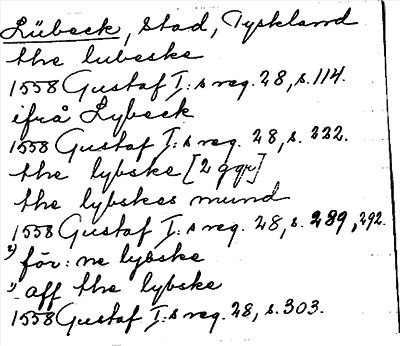 Lübeck, stad, Tyskland
the lubeske
1558 Gustaf I:s reg. 28, s. 114.
ifrå Lybeck
1558 Gustaf I:s reg. 28, s. 222.
the lybske [2 ggr]
the lybskes mund
1558 Gustaf I:s reg. 28, s. 289, 292.
för: ne lybske
aff the lybske
1558 Gustaf I:s reg. 28, s. 303.